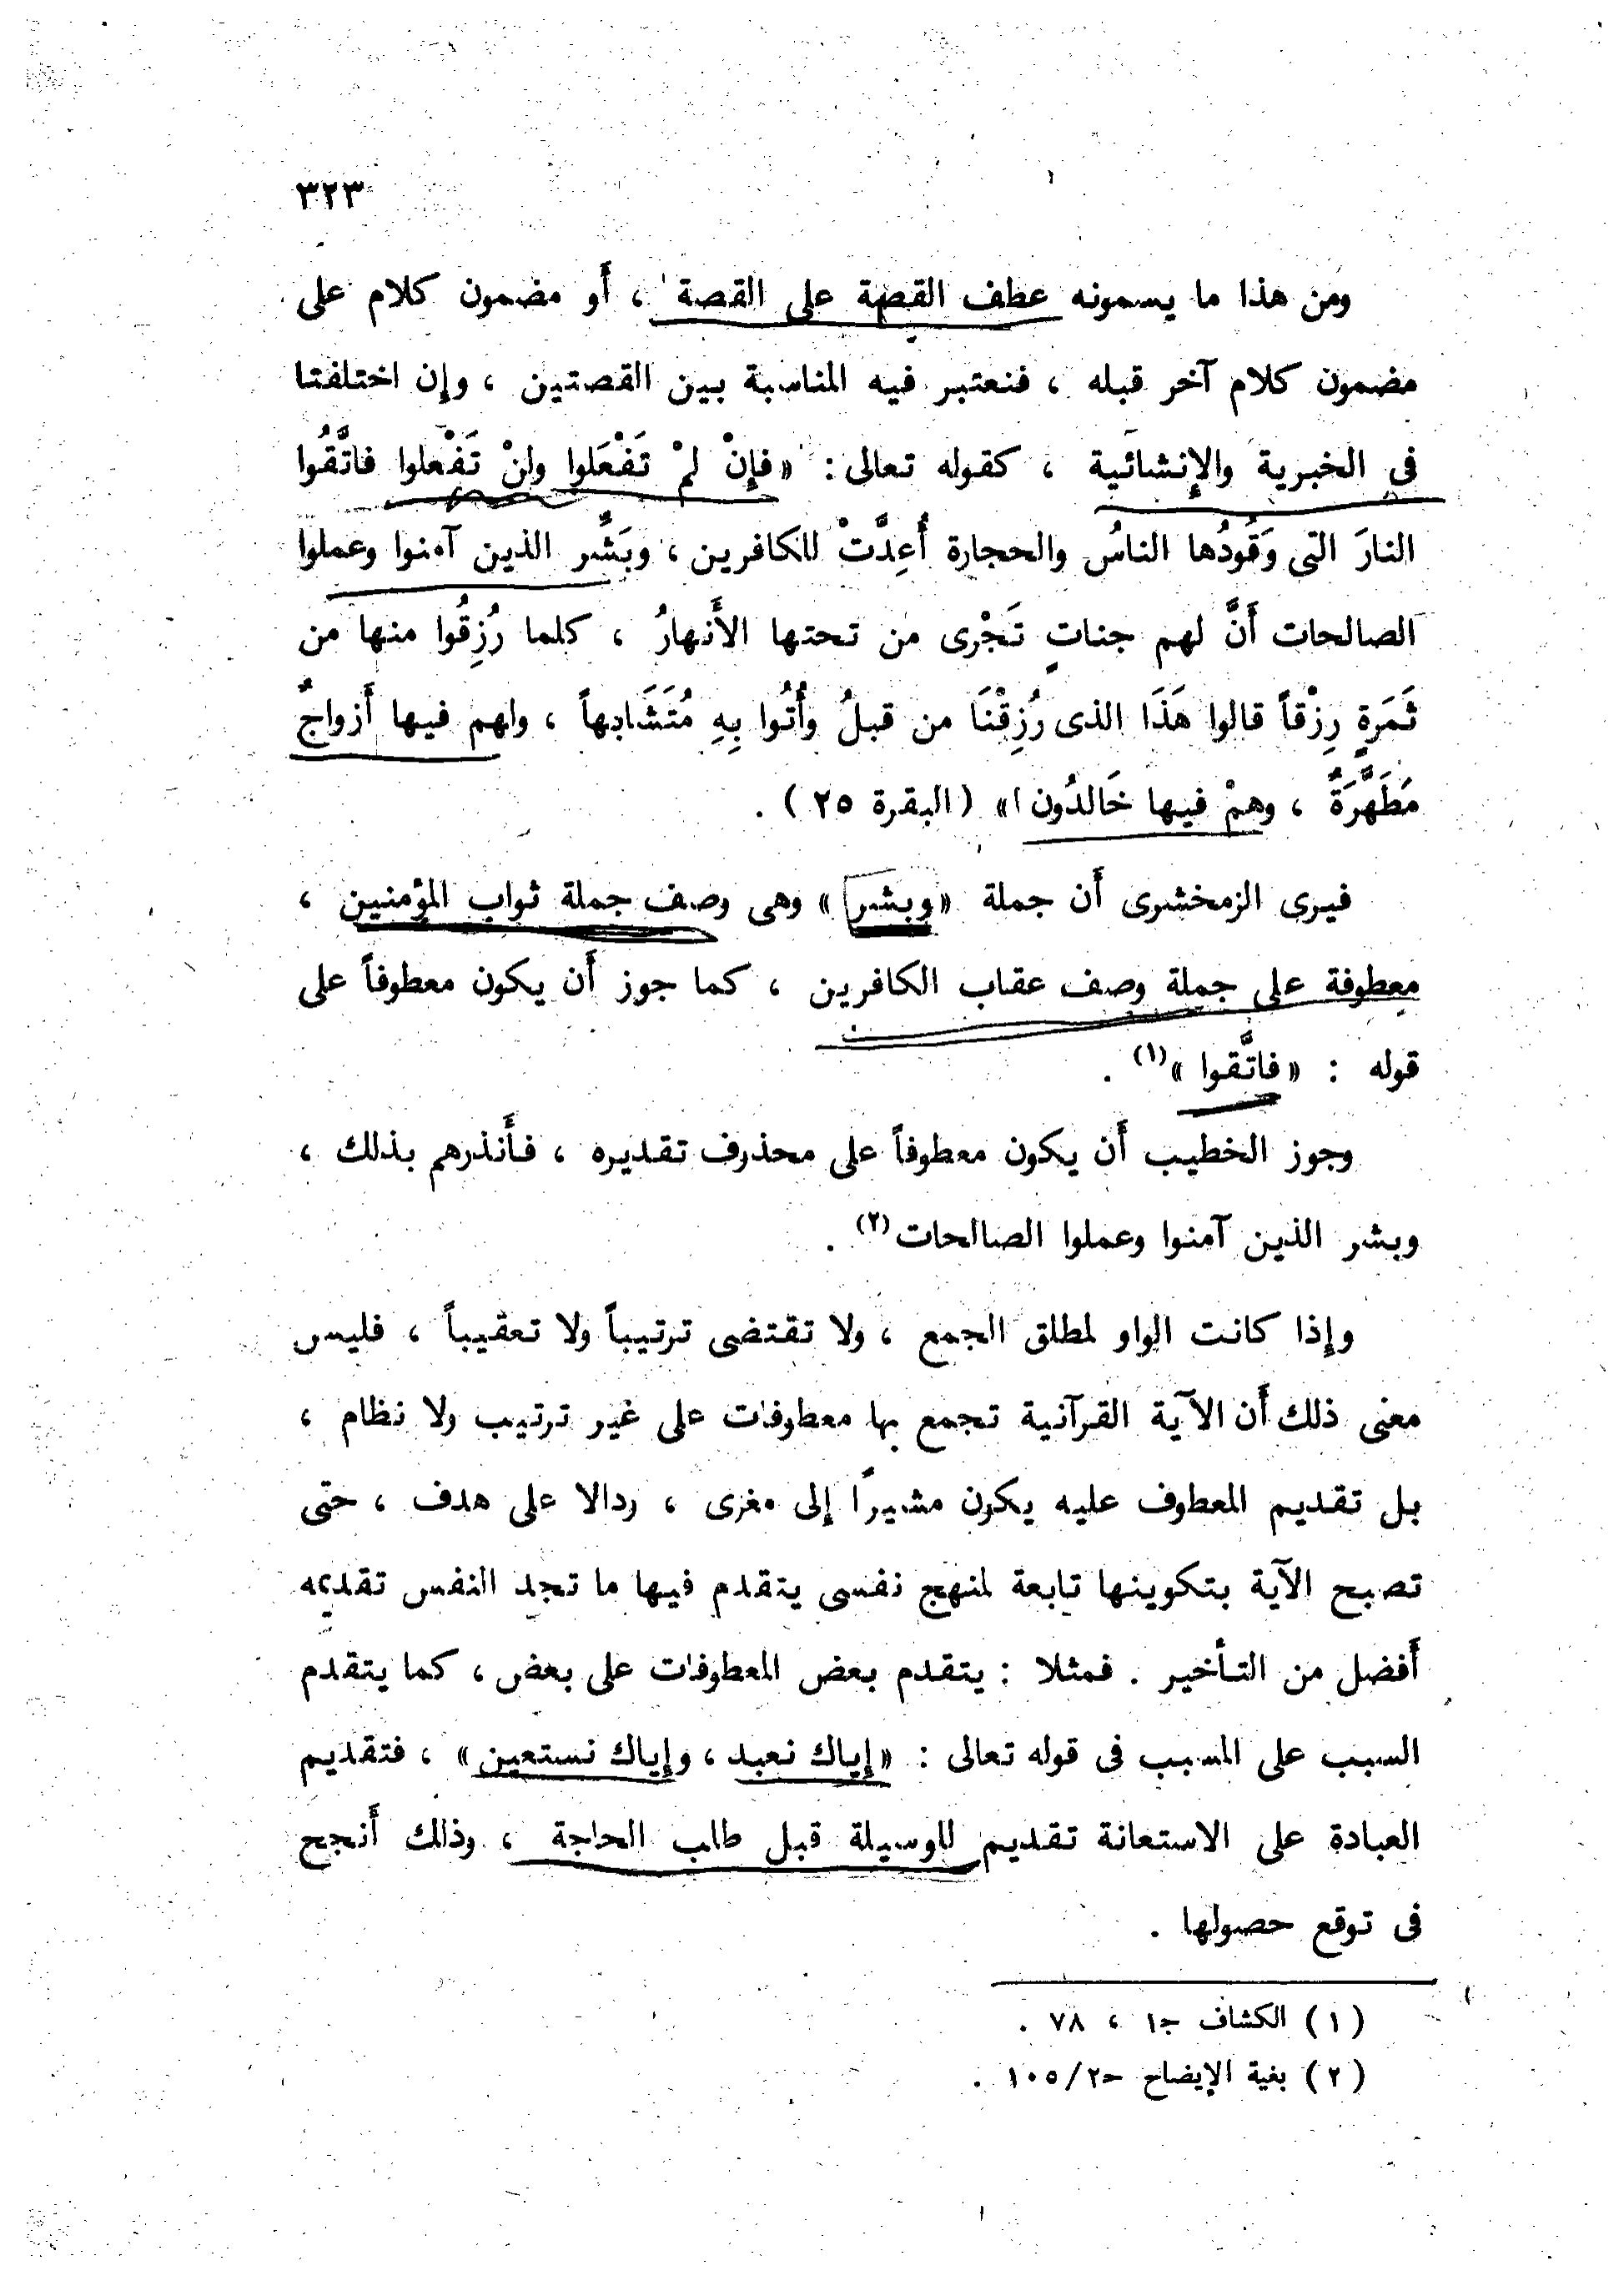 ٣٢٣
ومن هذا ما يسمونه عطف القصة على القصة ، أَو مضمون كلام على
مضمون كلام آخر قبله ، فنعتبر فيه المناسبة بين القصتين ، وإن اختلفتا
فى الخبرية والإنشائية ، كقوله تعالى : « فإِنْ لمْ تَفْعَلوا ولنْ تَفْعلوا فاتَّقُوا
النارَ التى وَقُودُها الناسُ والحجارة أُعِدَّتْ للكافرين ، وبَشِّر الذين آمنوا وعملوا
الصالحات أَنَّ لهم جناتٍ تَجْرى من تحتها الأَنهارُ ، كلما رُزِقُوا منها من
ثَمَرةٍ رِزْقاً قالوا هَذَا الذى رُزِقْنَا من قبلُ وأُتُوا بِهِ مُتَشَابهاً ، ولهم فيها أَزواجٌ
مُطَهَّرَةٌ ، وهمْ فيها خَالدُون » (البقرة ٢٥ ) .
فيرى الزمخشرى أَن جملة « وبشر » وهى وصف جملة ثواب المؤمنين ،
معطوفة على جملة وصف عقاب الكافرين ، كما جوز أَن يكون معطوفاً على
قوله : « فاتَّقوا »(١) .
وجوز الخطيب أَن يكون معطوفاً على محذوف تقديره ، فأَنذرهم بذلك ،
وبشر الذين آمنوا وعملوا الصالحات(٢) .
وإِذا كانت الواو لمطلق الجمع ، ولا تقتضى ترتيباً ولا تعقيباً ، فليس
معنى ذلك أَن الآية القرآنية تجمع بها معطوفات على غير ترتيب ولا نظام ،
بل تقديم المعطوف عليه يكون مشيرًا إلى مغزى ، ودالا على هدف ، حتى
تصبح الآية بتكوينها تابعة لمنهج نفسى يتقدم فيها ما تجد النفس تقديمه
أَفضل من التأخير . فمثلا : يتقدم بعض المعطوفات على بعض ، كما يتقدم
السبب على المسبب فى قوله تعالى : « إِياك نعبد ، وإِياك نستعين » ، فتقديم
العبادة على الاستعانة تقديم للوسيلة قبل طلب الحاجة ، وذلك أَنجح
فى توقع حصولها .
( ١ ) الكشاف جـ١ ، ٧٨ .
( ٢ ) بغية الإيضاح حـ٢/١٠٥ .